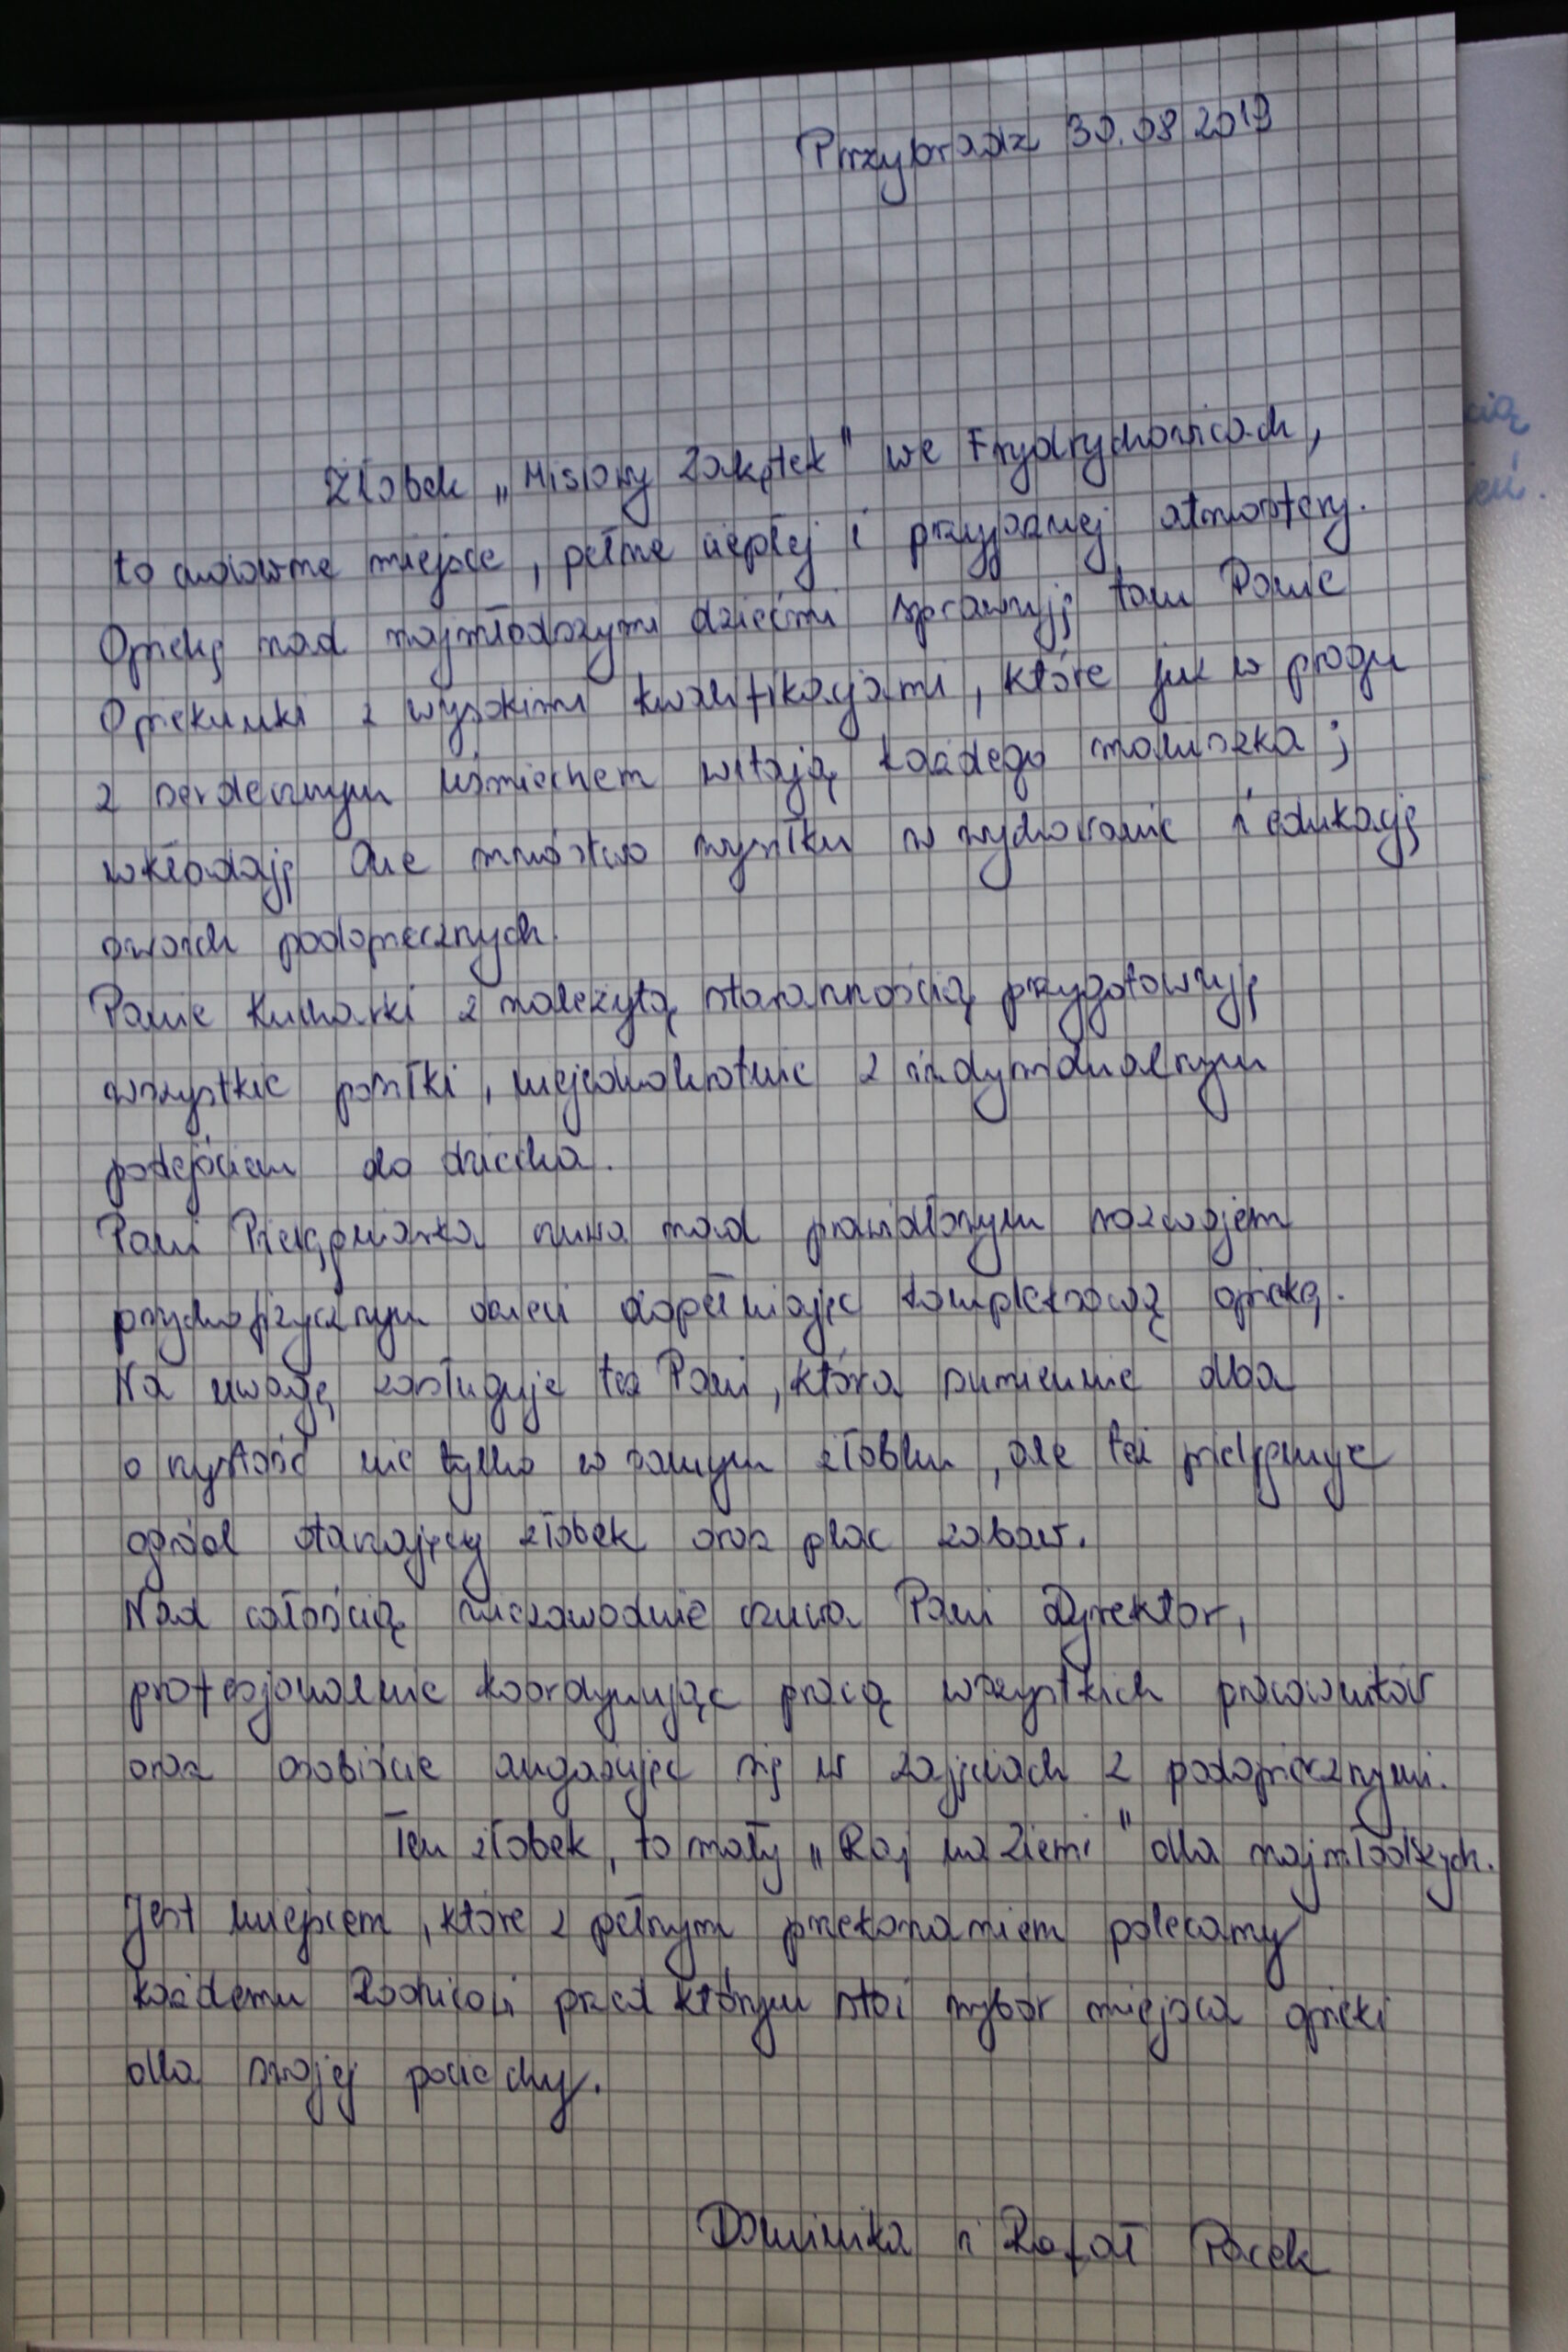 Przybradz 30.08.2019
Żłobek „Misiowy Zakątek" we Frydrychowicach,
to cudowne miejsce, pełne ciepłej i przyjaznej atmosfery.
Opiekę nad najmłodszymi dziećmi sprawują tam Panie
Opiekunki z wysokimi kwalifikacjami, które już w progu
z serdecznym uśmiechem witają każdego maluszka;
wkładają One mnóstwo wysiłku w wychowanie i edukację
swoich podopiecznych.
Panie Kucharki z należytą starannością przygotowują
wszystkie posiłki, niejednokrotnie z indywidualnym
podejściem do dziecka.
Pani Pielęgniarka czuwa nad prawidłowym rozwojem
psychofizycznym dzieci dopełniając kompleksową opiekę.
Na uwagę zasługuje też Pani, która sumiennie dba
o czystość nie tylko w samym żłobku, ale też pielęgnuje
ogród otaczający żłobek oraz plac zabaw.
Nad całością niezawodnie czuwa Pani Dyrektor,
profesjonalnie koordynując pracą wszystkich pracowników
oraz osobiście angażując się w zajęciach z podopiecznymi.
Ten żłobek, to mały „Raj na Ziemi" dla najmłodszych.
Jest miejscem, które z pełnym przekonaniem polecamy
każdemu Rodzicowi przed którym stoi wybór miejsca opieki
dla swojej pociechy.
Dominika i Rafał Pacek
cią
ień.